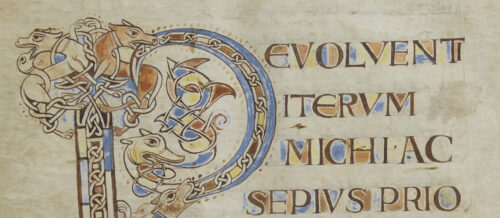 REVOLVENTI
ITERVM
MICHI AC
SEPIVS PRIO